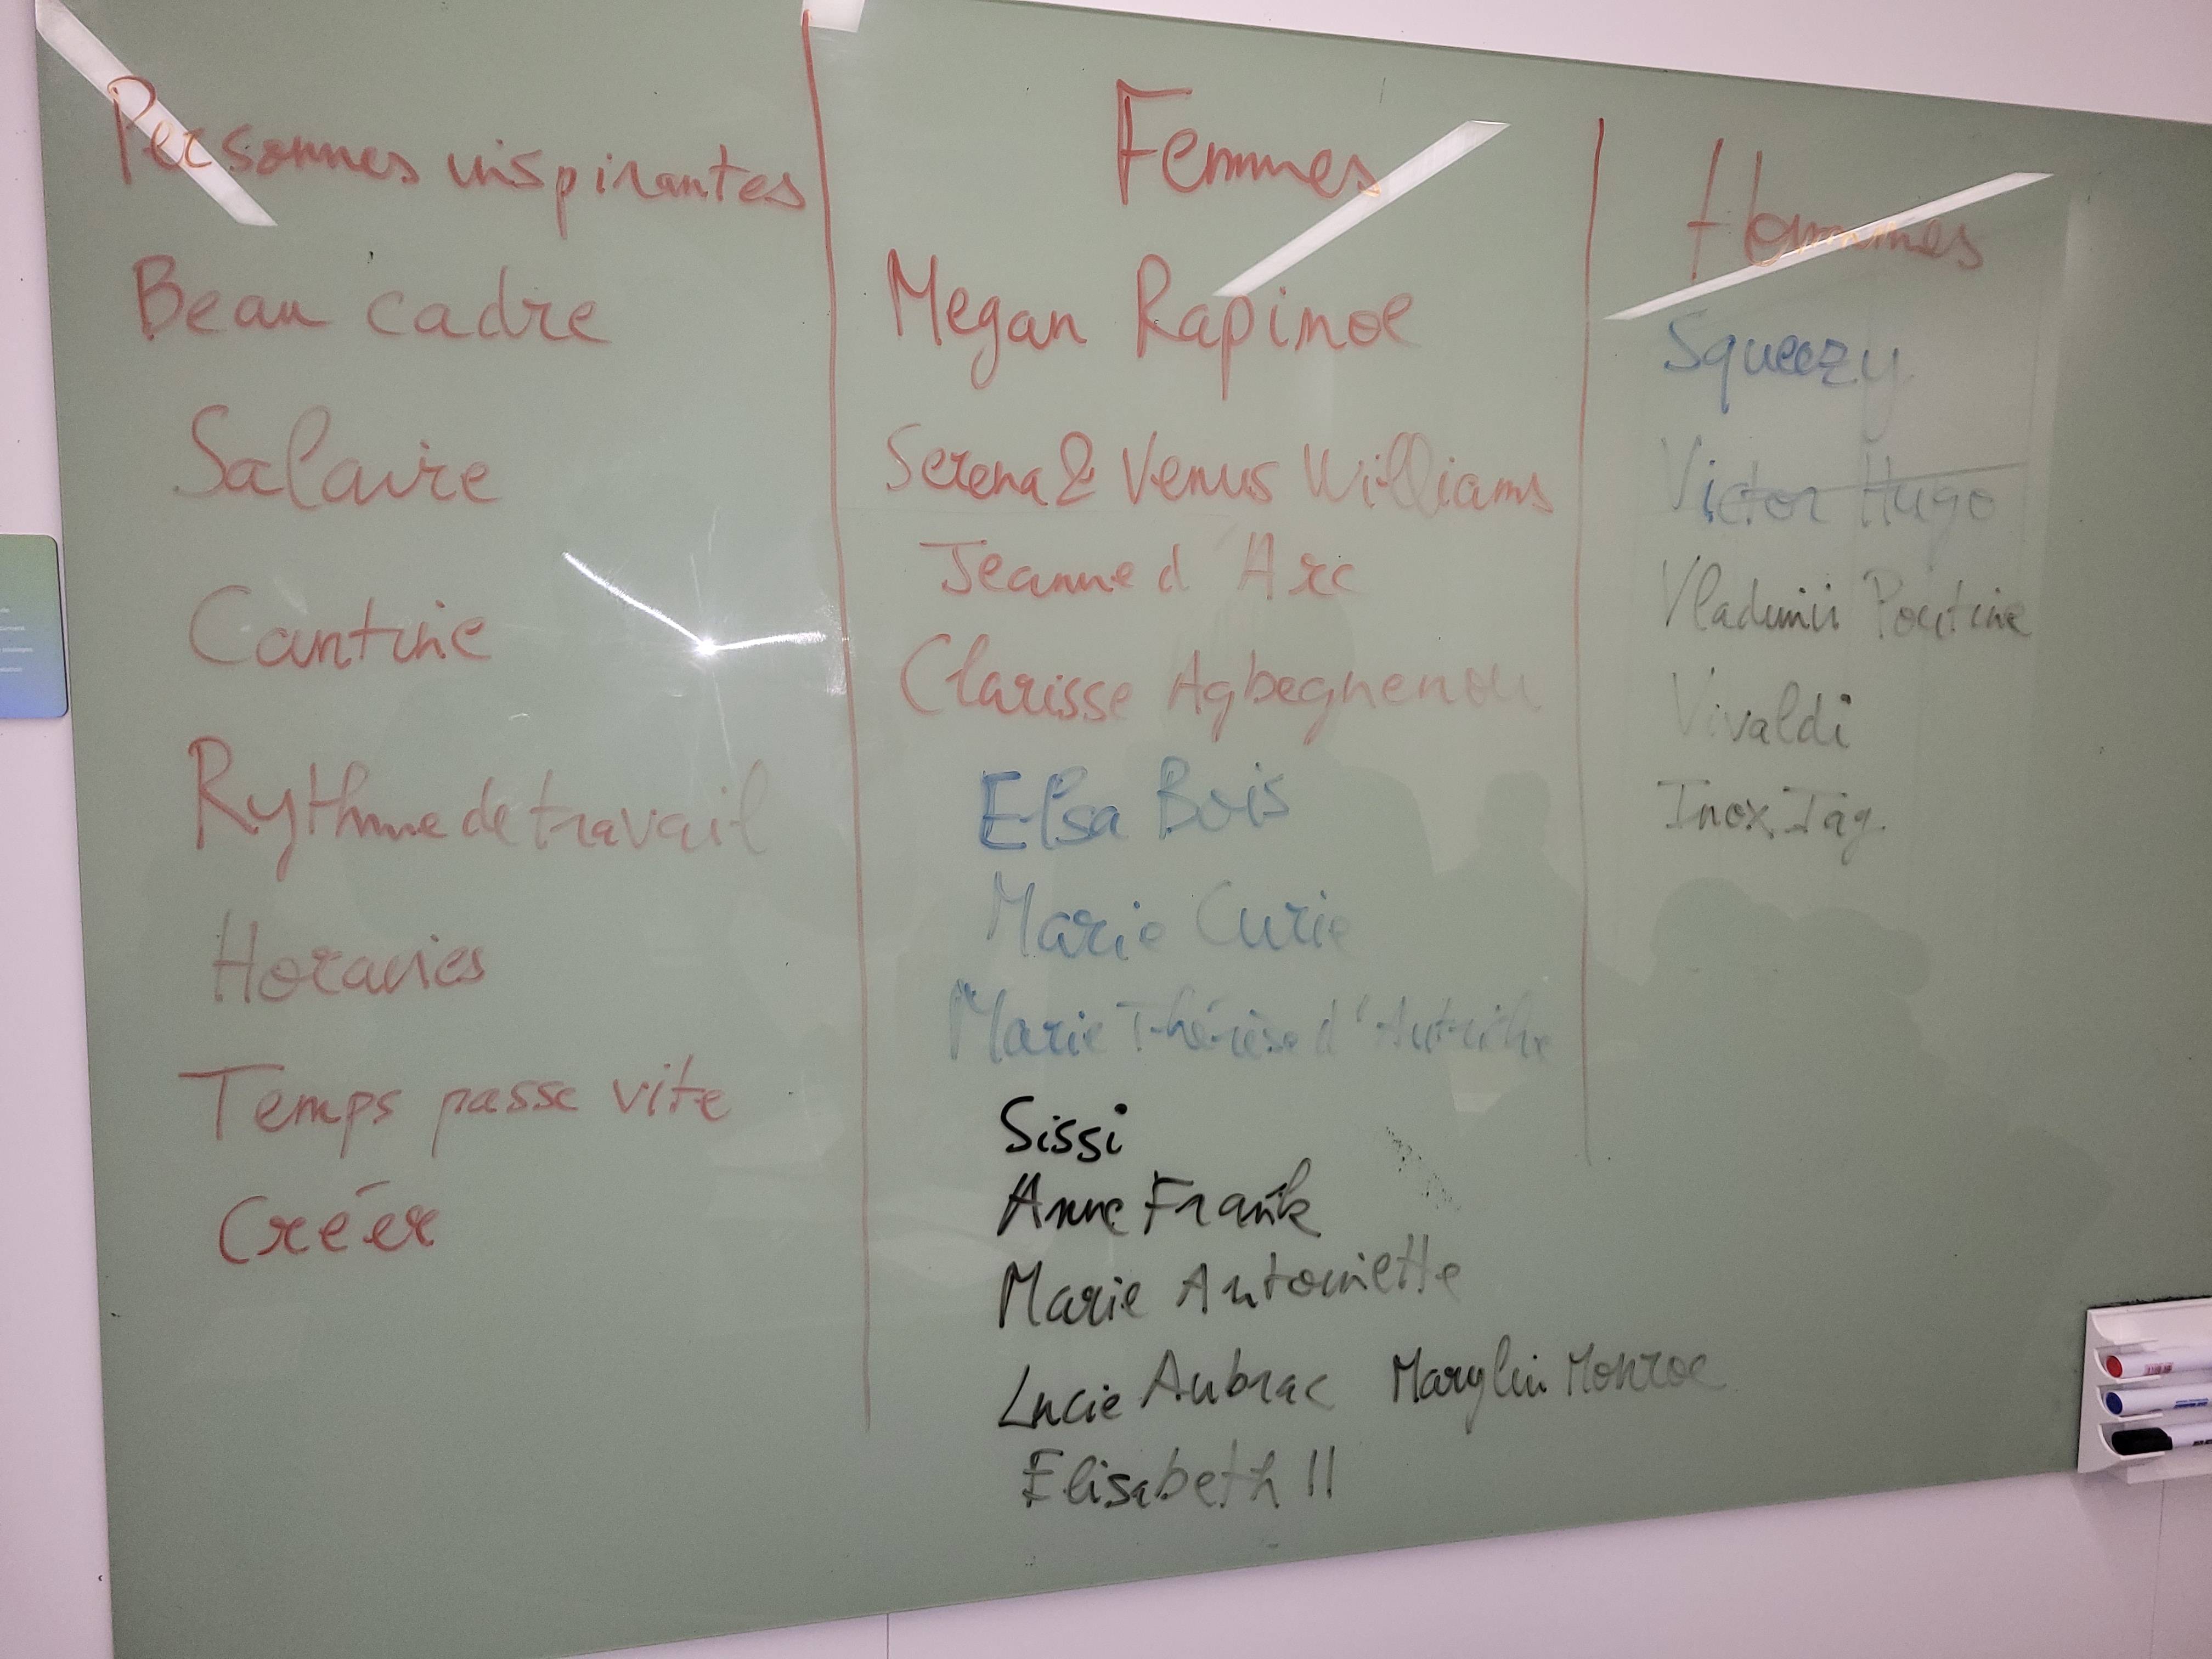 Personnes inspirantes
Beau cadre
Salaire
Cantine
Rythme de travail
Horaires
Temps passe vite
Créer
Femmes
Megan Rapinoe
Serena & Venus Williams
Jeanne d'Arc
Clarisse Agbegnenou
Elsa Bois
Marie Curie
Marie Thérèse d'Autriche
Sissi
Anne Frank
Marie Antoinette
Lucie Aubrac Marylin Monroe
Elisabeth II
Hommes
Squeezy
Victor Hugo
Vladimir Poutine
Vivaldi
Inox Tag.